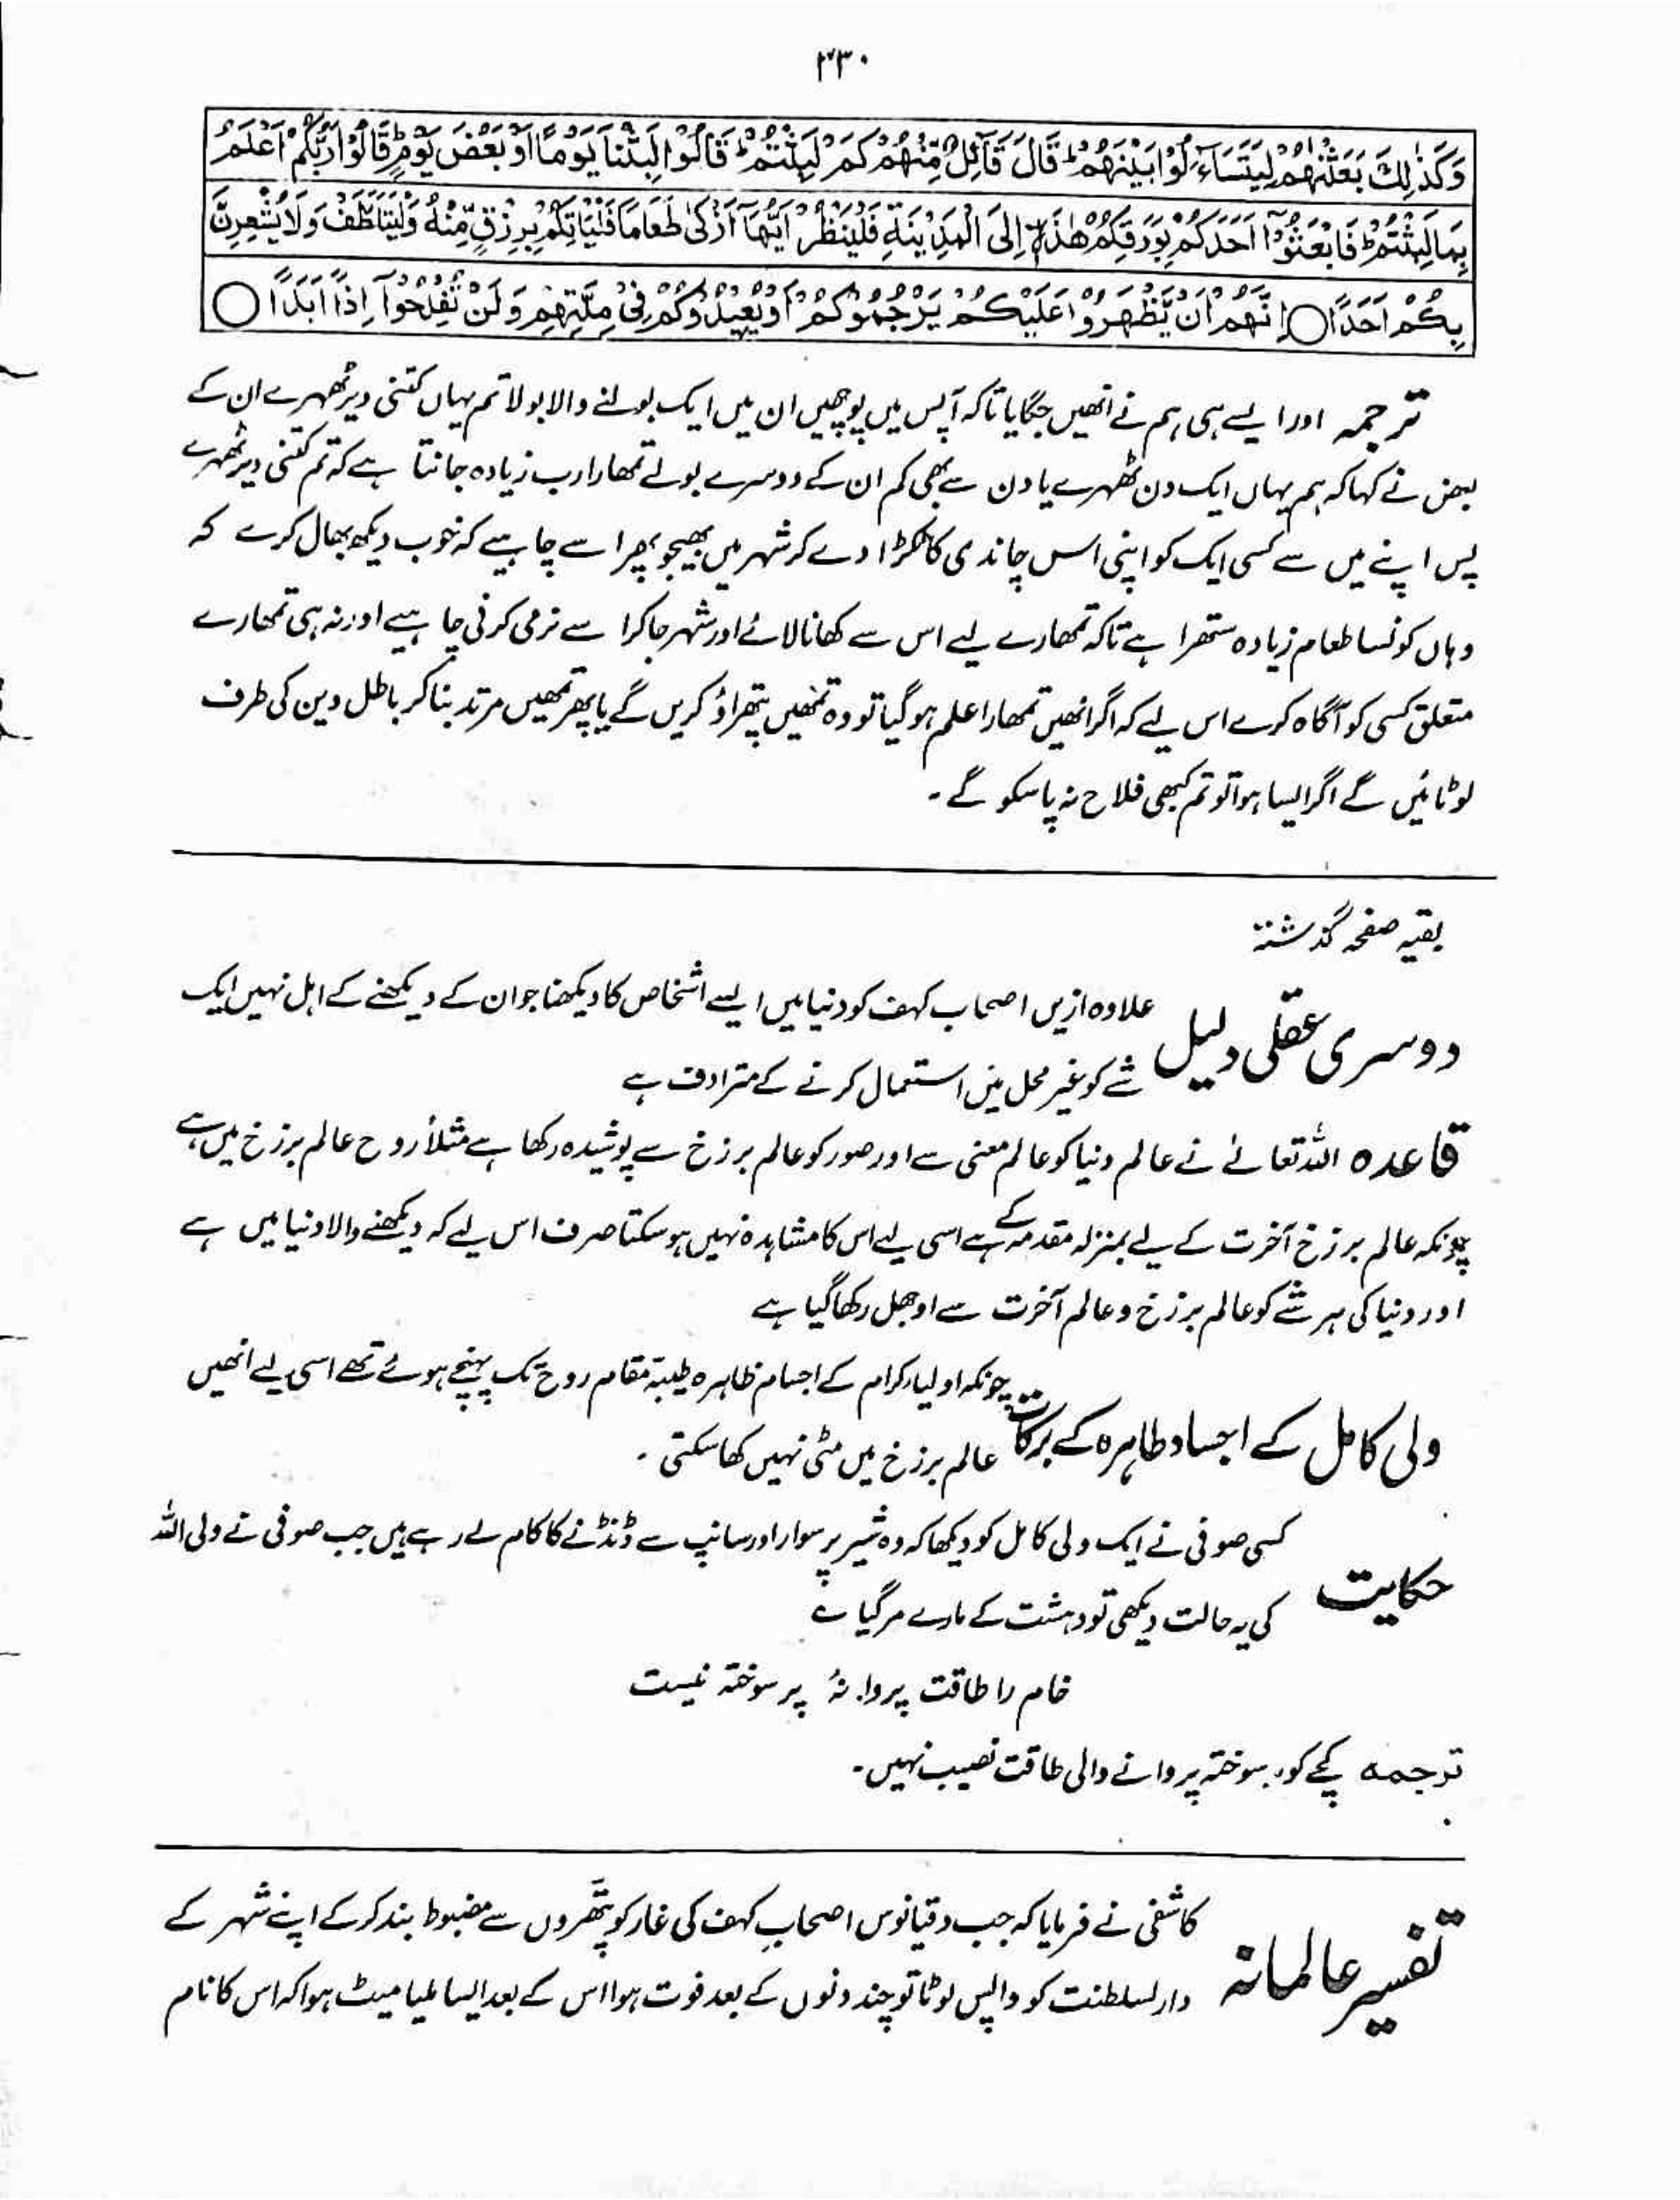 ۲۳۰
وَكَذٰلِكَ بَعَثْنٰهُمْ لِيَتَسَآءَلُوْا بَيْنَهُمْ ؕ قَالَ قَآئِلٌ مِّنْهُمْ كَمْ لَبِثْتُمْ ؕ قَالُوْا لَبِثْنَا يَوْمًا اَوْ بَعْضَ يَوْمٍ ؕ قَالُوْا رَبُّكُمْ اَعْلَمُ
بِمَا لَبِثْتُمْ ؕ فَابْعَثُوْٓا اَحَدَكُمْ بِوَرِقِكُمْ هٰذِهٖٓ اِلَى الْمَدِيْنَةِ فَلْيَنْظُرْ اَيُّهَآ اَزْكٰى طَعَامًا فَلْيَاْتِكُمْ بِرِزْقٍ مِّنْهُ وَلْيَتَلَطَّفْ وَلَا يُشْعِرَنَّ
بِكُمْ اَحَدًا ○ اِنَّهُمْ اِنْ يَّظْهَرُوْا عَلَيْكُمْ يَرْجُمُوْكُمْ اَوْ يُعِيْدُوْكُمْ فِيْ مِلَّتِهِمْ وَلَنْ تُفْلِحُوْٓا اِذًا اَبَدًا ○
ترجمہ اور ایسے ہی ہم نے انھیں جگایا تاکہ آپس میں پوچھیں ان میں ایک بولنے والا بولا تم یہاں کتنی دیر ٹھہرے ان کے
بعض نے کہا کہ ہم یہاں ایک دن ٹھہرے یا دن سے بھی کم ان کے دوسرے بولے تمھارا رب زیادہ جانتا ہے کہ تم کتنی دیر ٹھہرے
پس اپنے میں سے کسی ایک کو اپنی اس چاندی کا ٹکڑا دے کر شہر میں بھیجو پھر اسے چاہیے کہ خوب دیکھ بھال کرے کہ
وہاں کونسا طعام زیادہ ستھرا ہے تاکہ تمھارے لیے اس سے کھانا لائے اور شہر جا کر اسے نرمی کرنی چاہیے اور نہ ہی تمھارے
متعلق کسی کو آگاہ کرے اس لیے کہ اگر انھیں تمھارا علم ہو گیا تو وہ تمھیں پتھراؤ کریں گے یا پھر تمھیں مرتد بنا کر باطل دین کی طرف
لوٹائیں گے اگر ایسا ہوا تو تم کبھی فلاح نہ پا سکو گے ۔
بقیہ صفحہ گذشتہ
دوسری عقلی دلیل علاوہ ازیں اصحاب کہف کو دنیا میں ایسے اشخاص کا دیکھنا جو ان کے دیکھنے کے اہل نہیں ایک
شے کو غیر محل میں استعمال کرنے کے مترادف ہے
قاعدہ اللہ تعالےٰ نے عالم دنیا کو عالم معنی سے اور صور کو عالم برزخ سے پوشیدہ رکھا ہے مثلاً روح عالم برزخ میں ہے
چونکہ عالم برزخ آخرت کے لیے بمنزلہ مقدمہ کے ہے اسی لیے اس کا مشاہدہ نہیں ہو سکتا صرف اس لیے کہ دیکھنے والا دنیا میں ہے
اور دنیا کی ہر شے کو عالم برزخ و عالم آخرت سے اوجھل رکھا گیا ہے
ولی کامل کے اجساد طاہرہ کے برکات چونکہ اولیاء کرام کے اجسام ظاہرہ طیبہ مقام روح تک پہنچے ہوئے تھے اسی لیے انھیں
عالم برزخ میں مٹی نہیں کھا سکتی ۔
حکایت کسی صوفی نے ایک ولی کامل کو دیکھا کہ وہ شیر پر سوار اور سانپ سے ڈنڈے کا کام لے رہے ہیں جب صوفی نے ولی اللہ
کی یہ حالت دیکھی تو دہشت کے مارے مر گیا ے
خام را طاقت پروانۂ پر سوختہ نیست
ترجمہ کچے کو پر سوختہ پروانے والی طاقت نصیب نہیں ۔
تفسیر عالمانہ کاشفی نے فرمایا کہ جب دقیانوس اصحابِ کہف کی غار کو پتھروں سے مضبوط بند کر کے اپنے شہر کے
دار لسلطنت کو واپس لوٹا تو چند دنوں کے بعد فوت ہوا اس کے بعد ایسا ملیا میٹ ہوا کہ اس کا نام